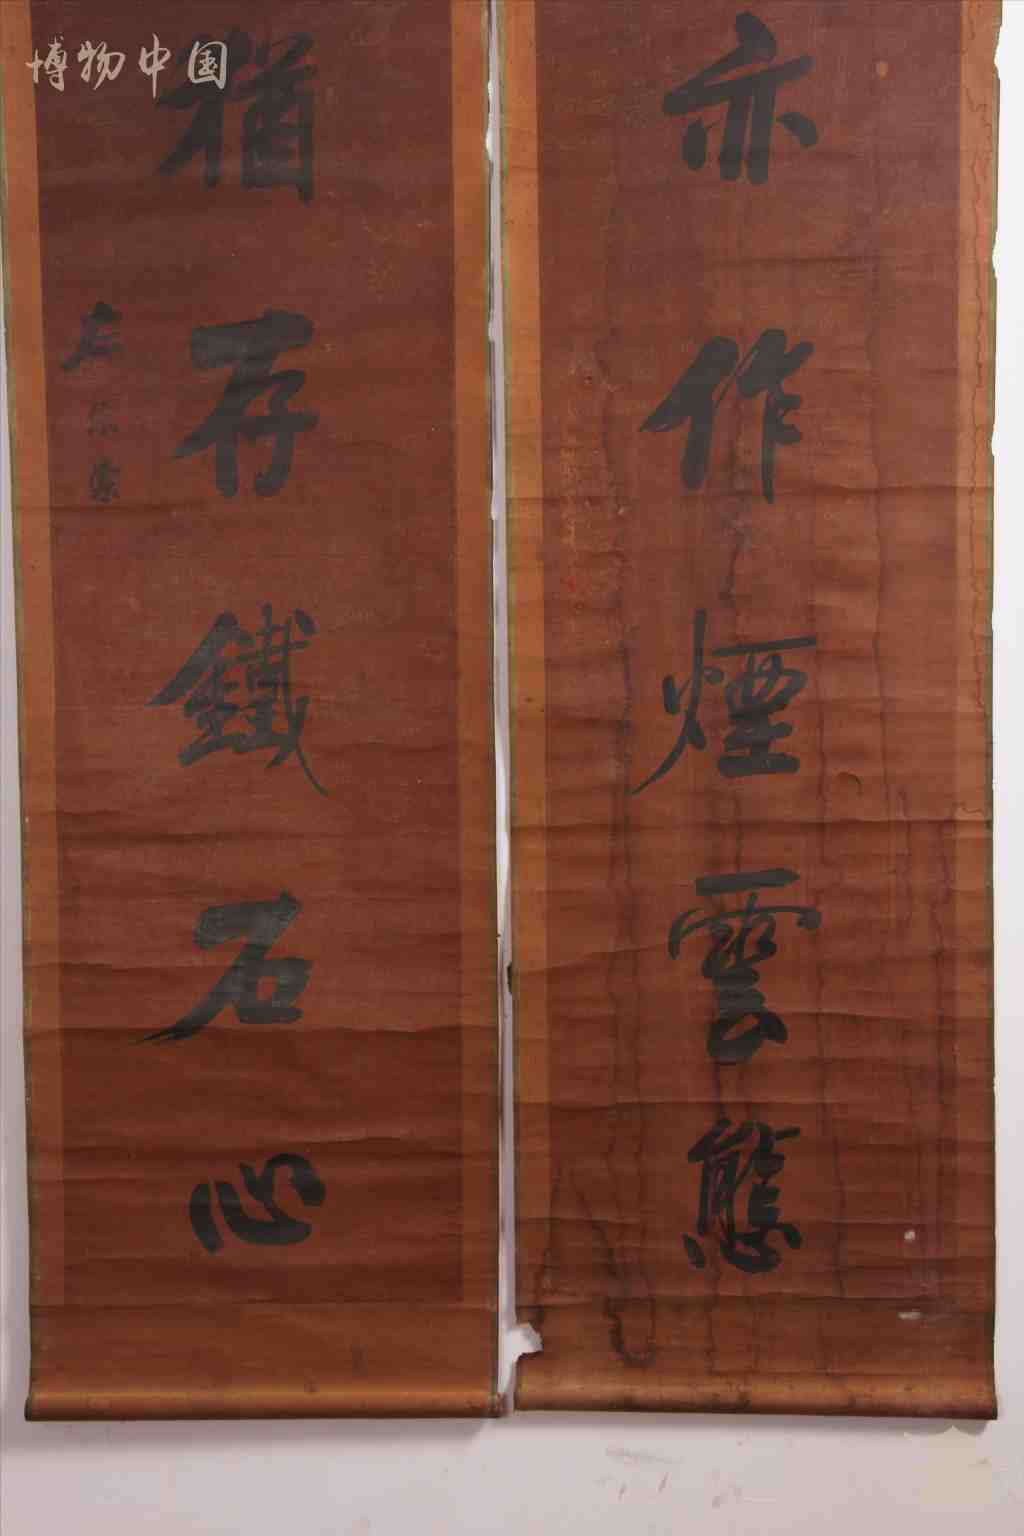 博物中国
亦作煙雲態
猶存鐵石心
左宗棠